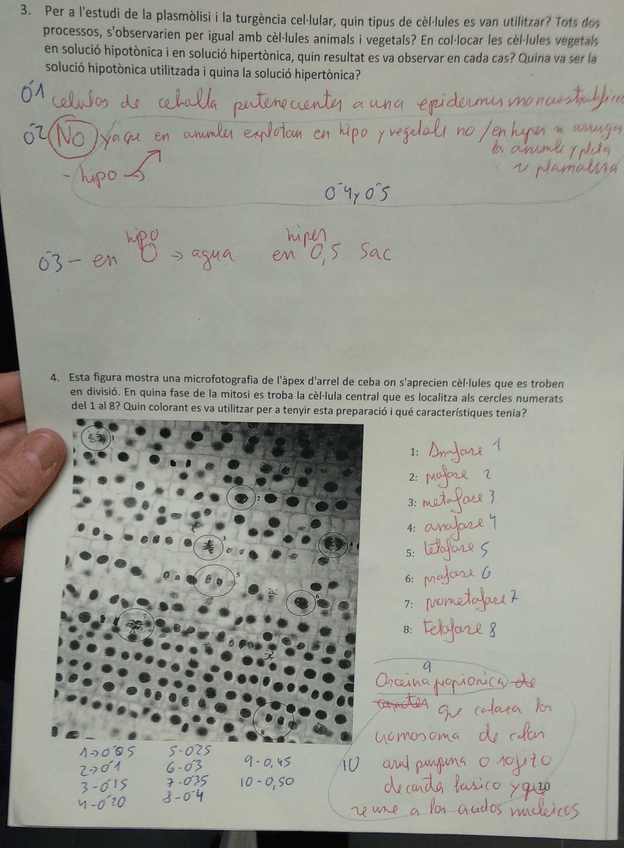 3. Per a l'estudi de la plasmòlisi i la turgència cel·lular, quin tipus de cèl·lules es van utilitzar? Tots dos
processos, s'observarien per igual amb cèl·lules animals i vegetals? En col·locar les cèl·lules vegetals
en solució hipotònica i en solució hipertònica, quin resultat es va observar en cada cas? Quina va ser la
solució hipotònica utilitzada i quina la solució hipertònica?
0'1 celulas de cebolla pertenecientes a una epidermis monoestratificada
0'2 NO ya que en animales explotan en hipo y vegetales no / en hiper se arruga
la animal y
- hipo
0'4 y 0'5
hipo hiper
0'3 - en 0 → agua en 0,5 Sac
4. Esta figura mostra una microfotografia de l'àpex d'arrel de ceba on s'aprecien cèl·lules que es troben
en divisió. En quina fase de la mitosi es troba la cèl·lula central que es localitza als cercles numerats
del 1 al 8? Quin colorant es va utilitzar per a tenyir esta preparació i qué característiques tenia?
1: Anafase 1
2: profase 2
3: metafase 3
4: anafase 4
5: telofase 5
6: profase 6
7: prometafase 7
8: telofase 8
9
Orceina propionica de
que colorea los
cromosoma de color
10 azul purpura o rojizo
de caracter basico y que
se une a los acidos nucleicos
10
1→0'05 5-0'25 9-0,45
2→0'1 6-0'3 10-0,50
3-0'15 7-0'35
4-0'20 8-0'4